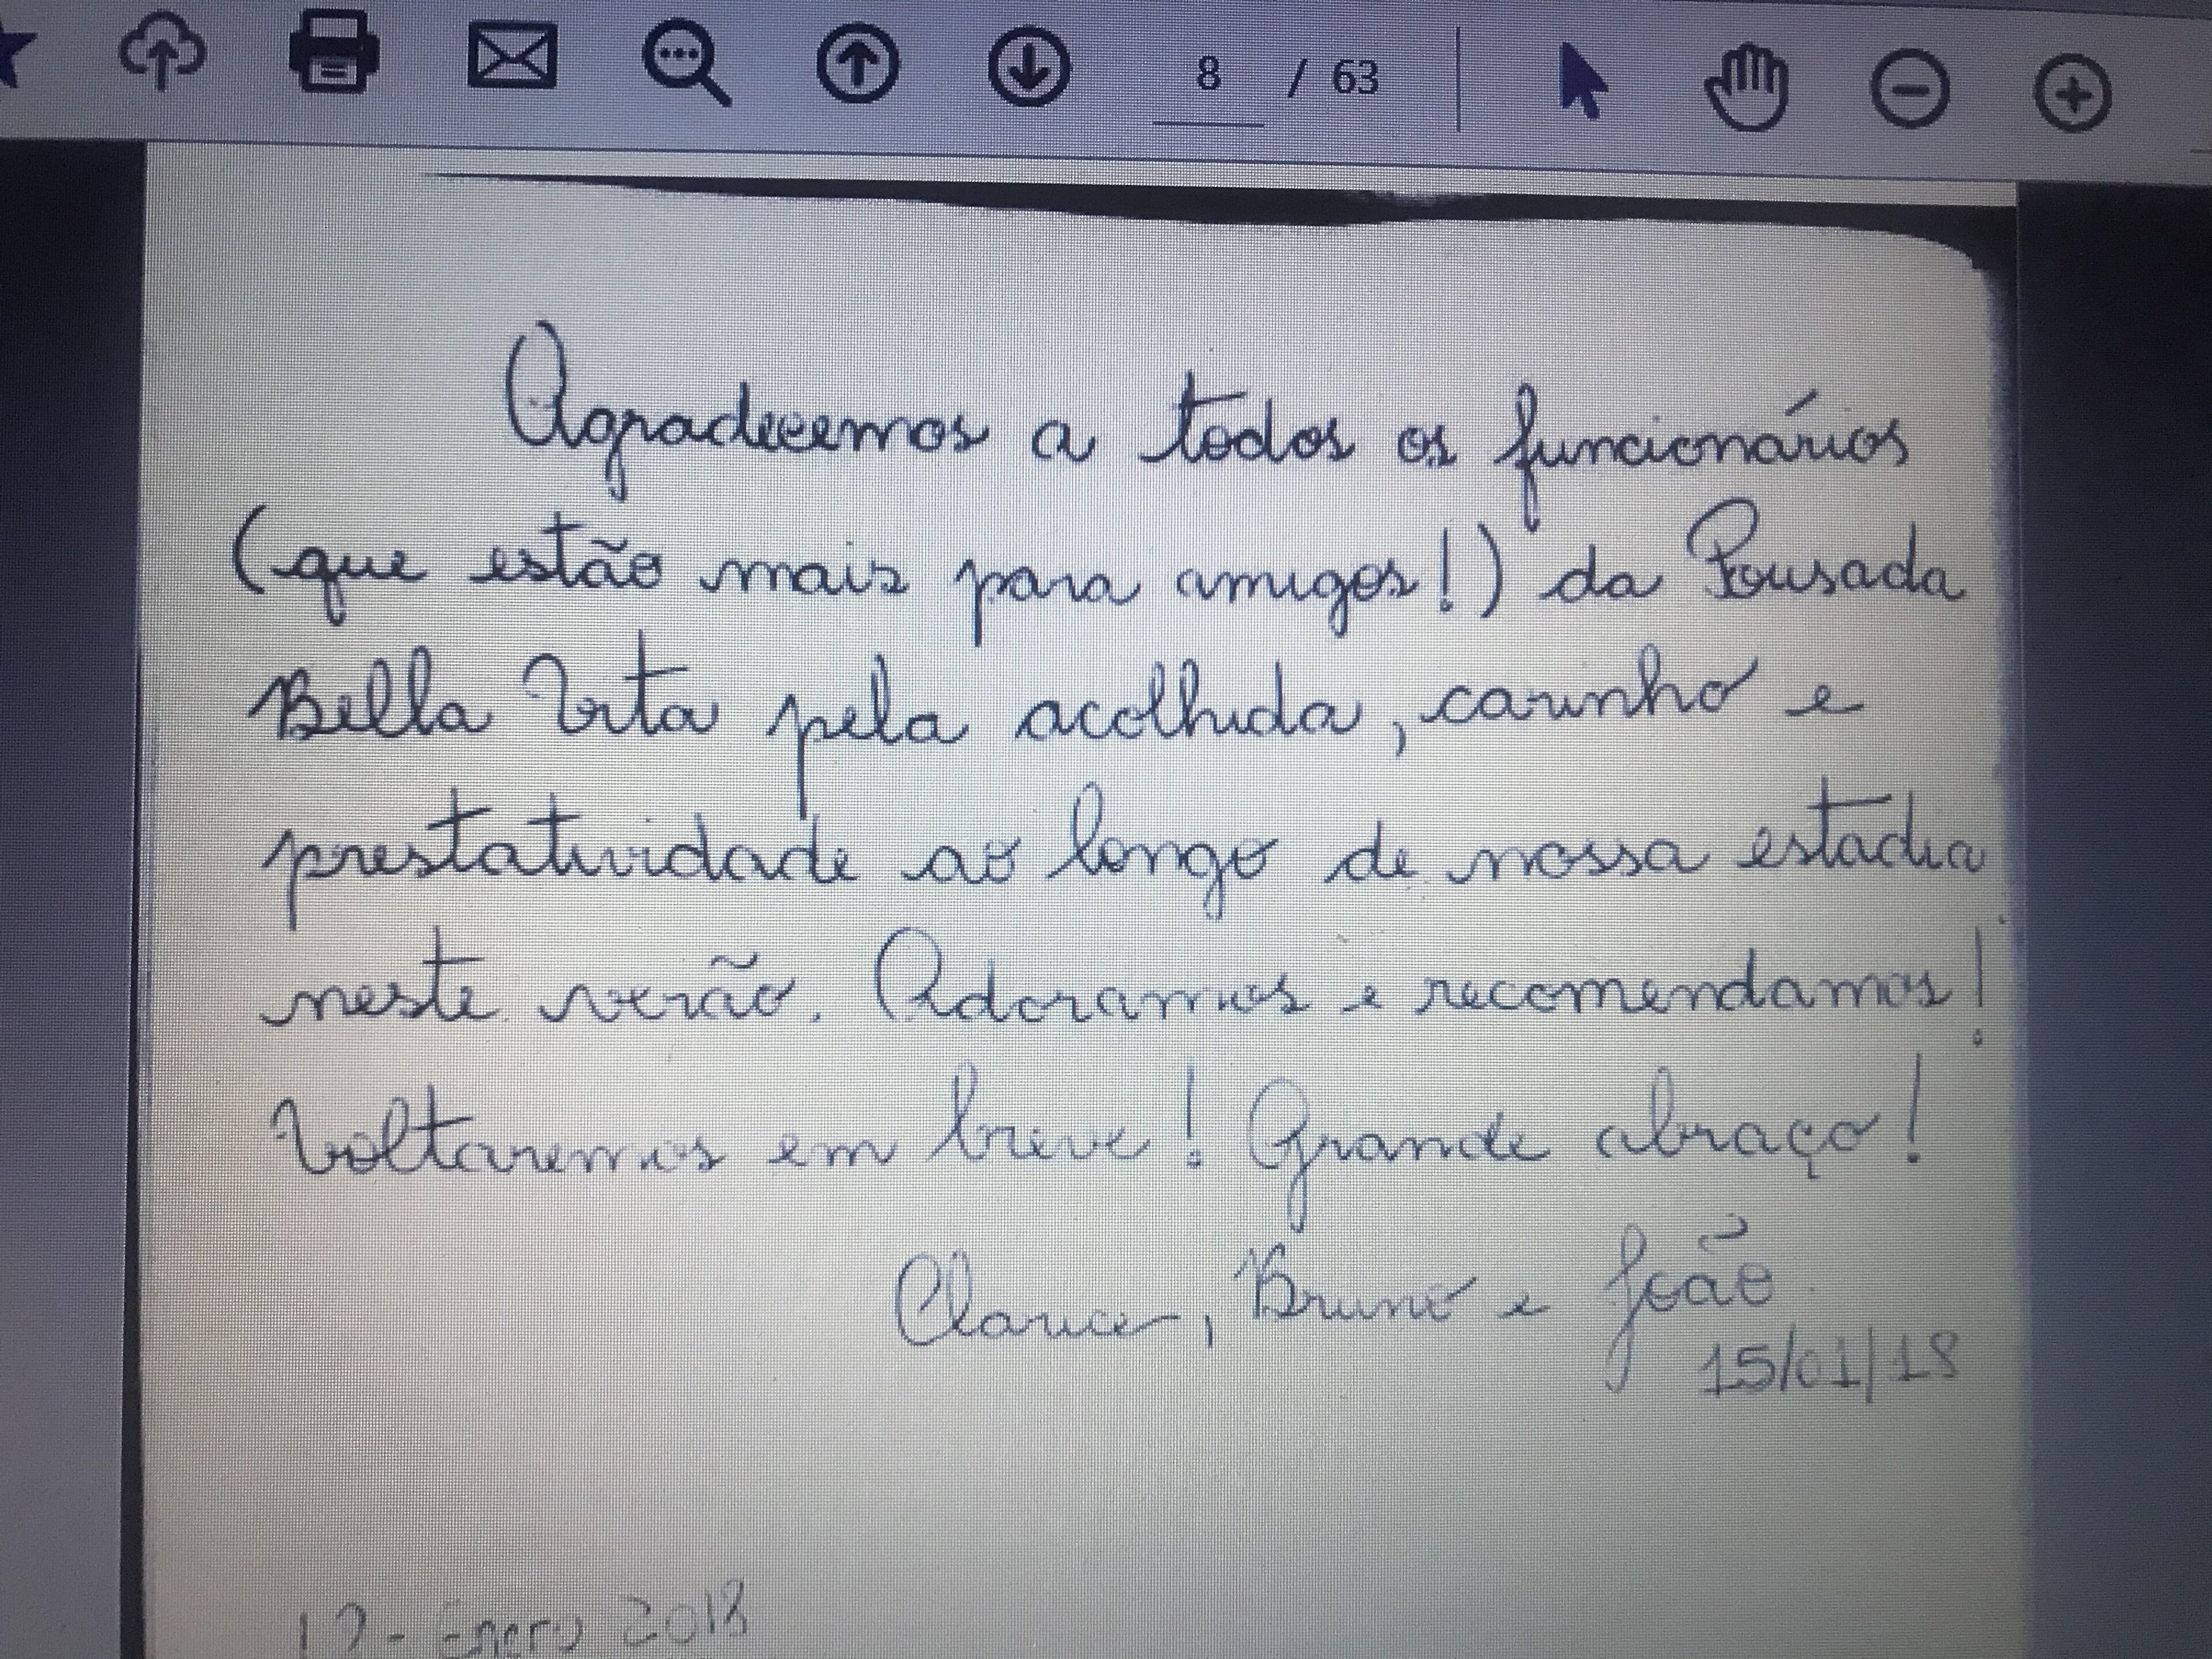 8 / 63
Agradecemos a todos os funcionários
(que estão mais para amigos!) da Pousada
Bella Vita pela acolhida, carinho e
prestatividade ao longo de nossa estadia
neste verão. Adoramos e recomendamos!
Voltaremos em breve! Grande abraço!
Clarice, Bruno e João
15/01/18
Enero 2018